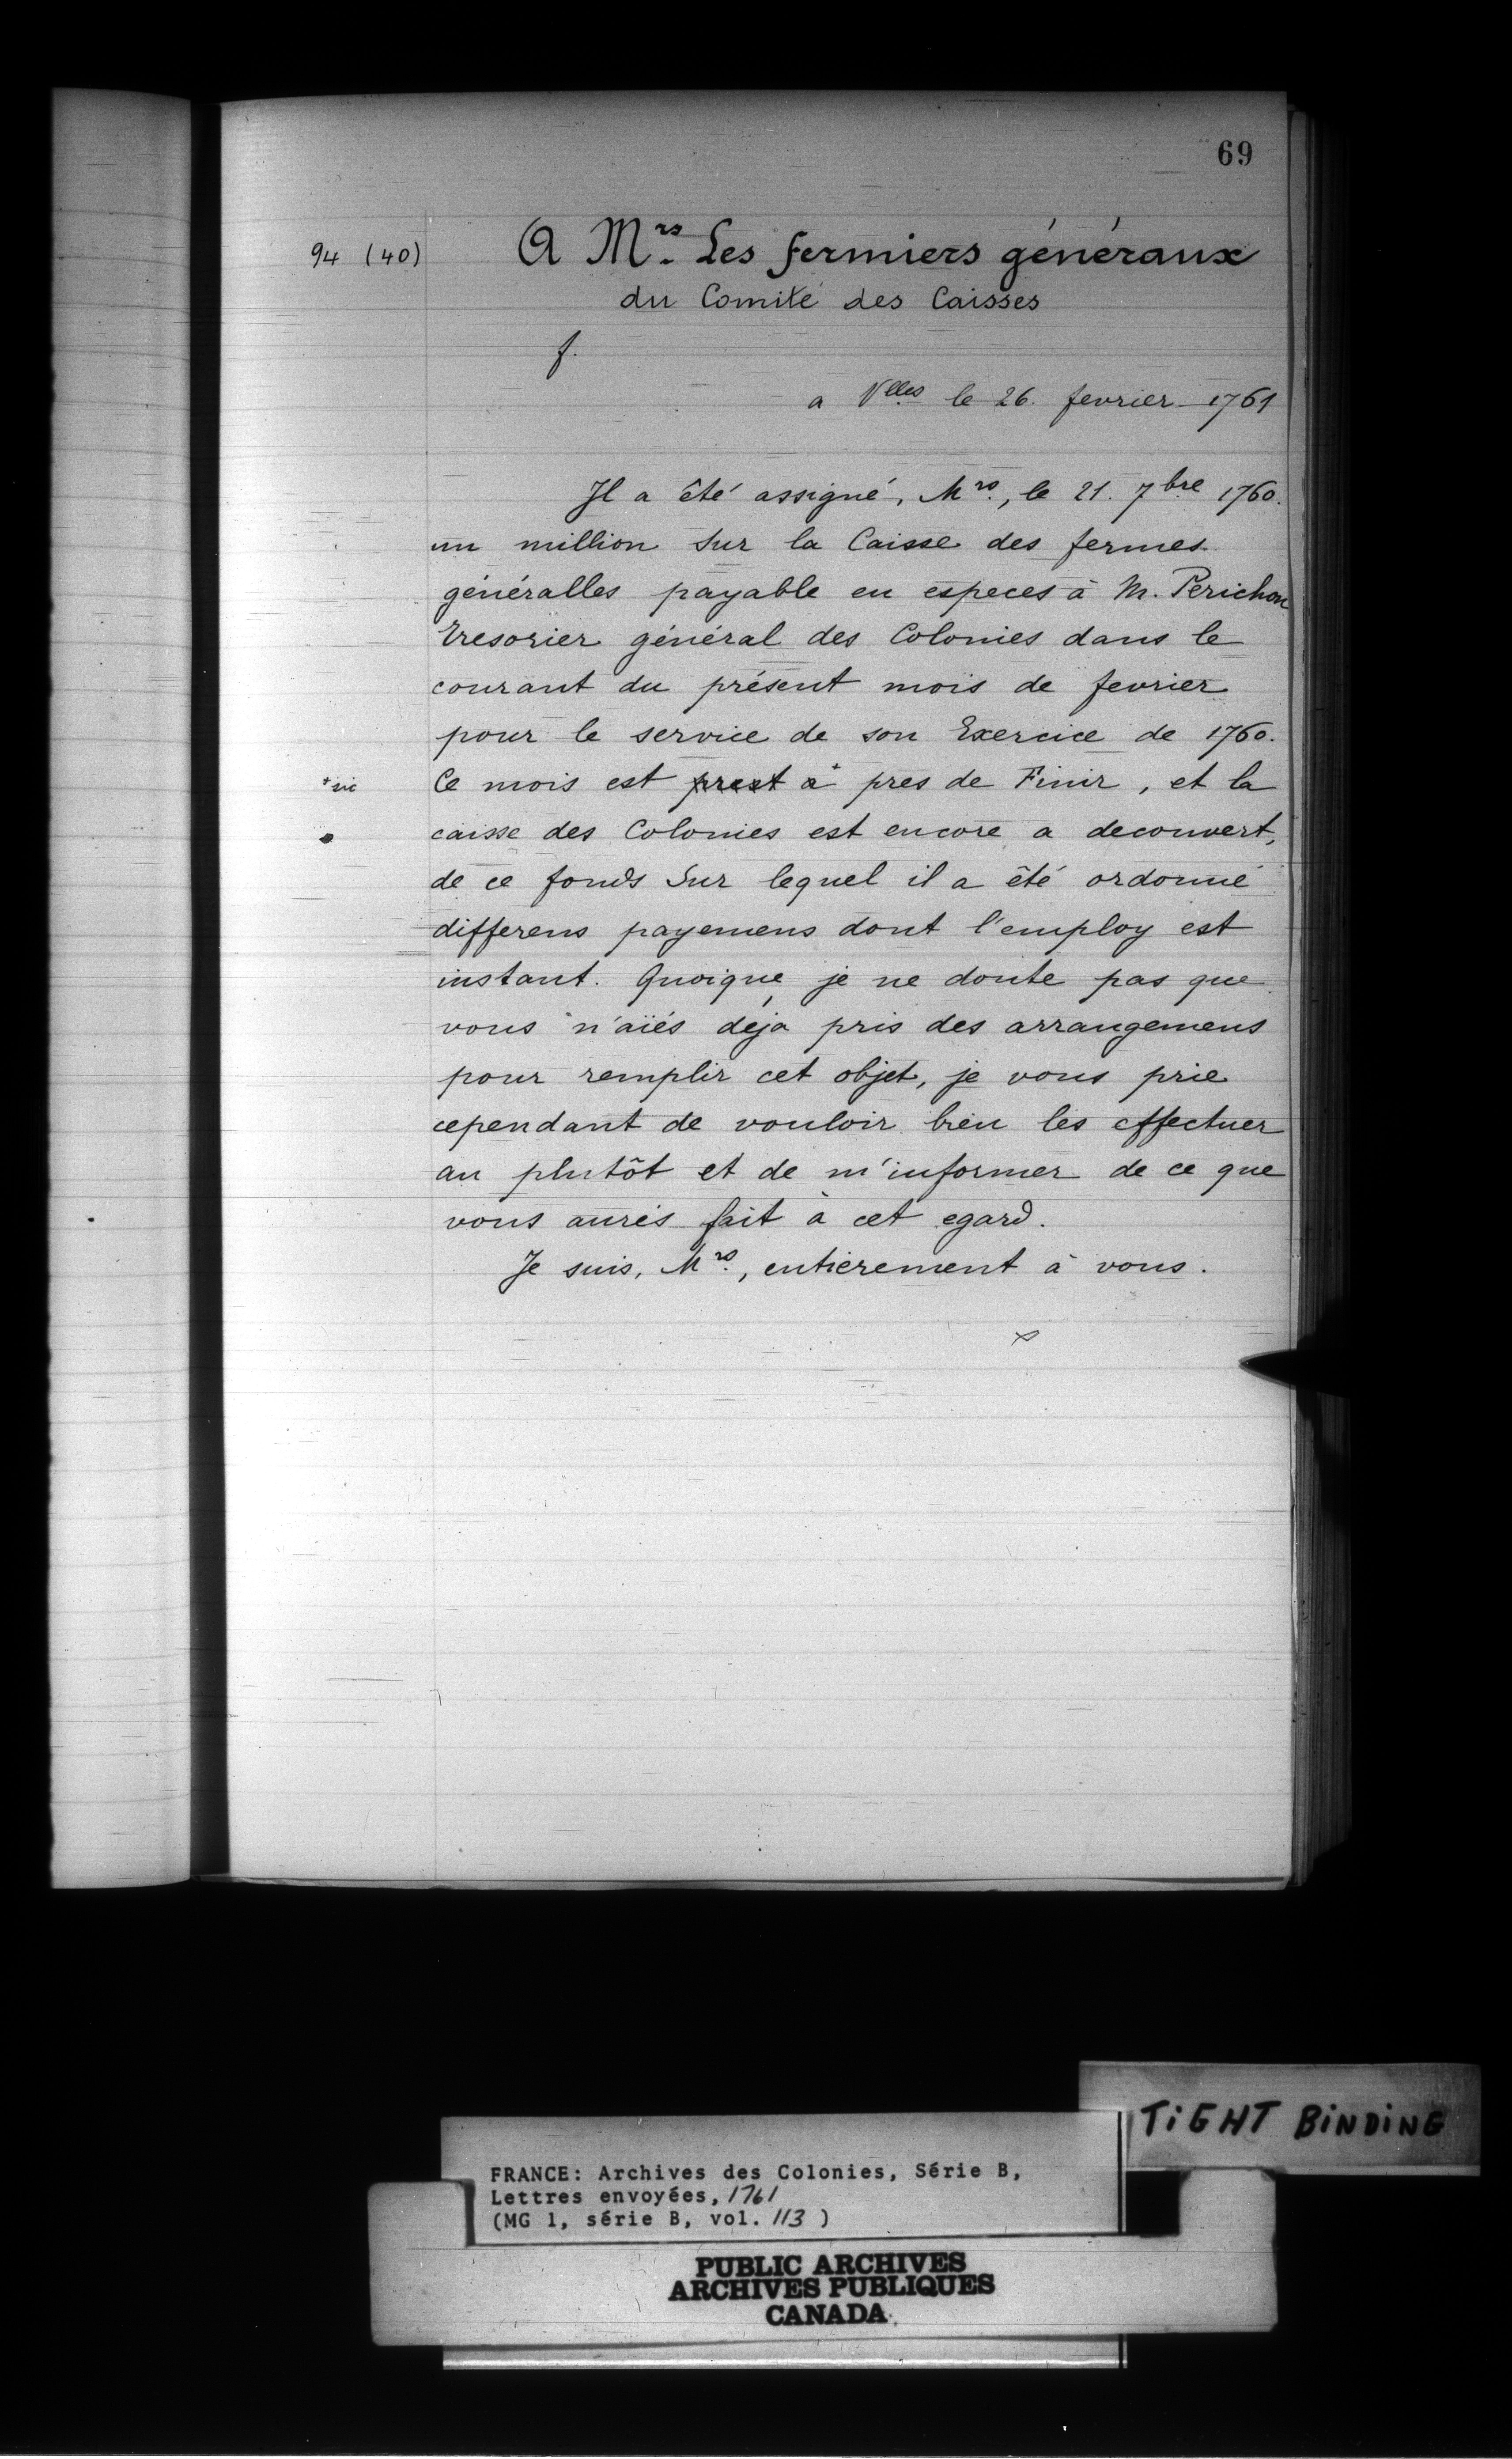 69
94 (40)
A Mrs Les fermiers généraux
du Comité des Caisses
f.
a Vlles le 26. fevrier 1761
Il a été assigné, Mrs., le 21. 7bre 1760.
un million Sur la Caisse des fermes
généralles payable en especes à M. Perichon
Tresorier général des Colonies dans le
courant du présent mois de fevrier
pour le service de son Exercice de 1760.
+ sic
Ce mois est prest à+ pres de Finir, et la
caisse des Colonies est encore a decouvert,
de ce fonds Sur lequel il a été ordonné
differens payemens dont l'employ est
instant. Quoique je ne doute pas que
vous n'aïés déja pris des arrangemens
pour remplir cet objet, je vous prie
cependant de vouloir bien les effectuer
au plutôt et de m'informer de ce que
vous aurés fait à cet egard.
Je suis, Mrs., entierement à vous.
TiGHT BiNDiNG
FRANCE: Archives des Colonies, Série B,
Lettres envoyées, 1761
(MG 1, série B, vol. 113 )
PUBLIC ARCHIVES
ARCHIVES PUBLIQUES
CANADA